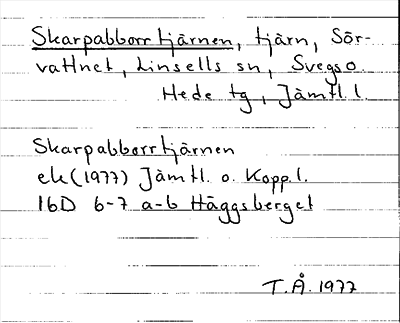 Skarpabborrtjärnen, tjärn, Sör-
vattnet, Linsells sn, Svegs o.
Hede tg, Jämtl. l.
Skarpabborrtjärnen
ek (1977) Jämtl. o. Koppl.
16D 6-7 a-b Häggsberget
T.Å. 1977